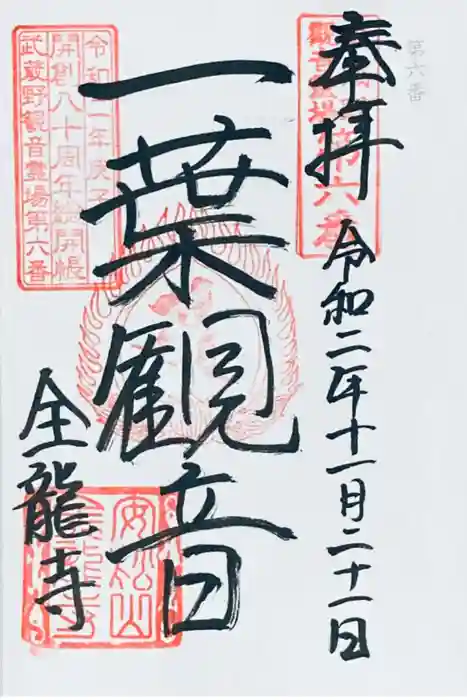 第六番
奉拝
令和二年十一月二十一日
一葉観音
全龍寺
令和二年庚子
開創八十周年総開帳
武蔵野観音霊場第六番
第六番
安松山
金龍寺